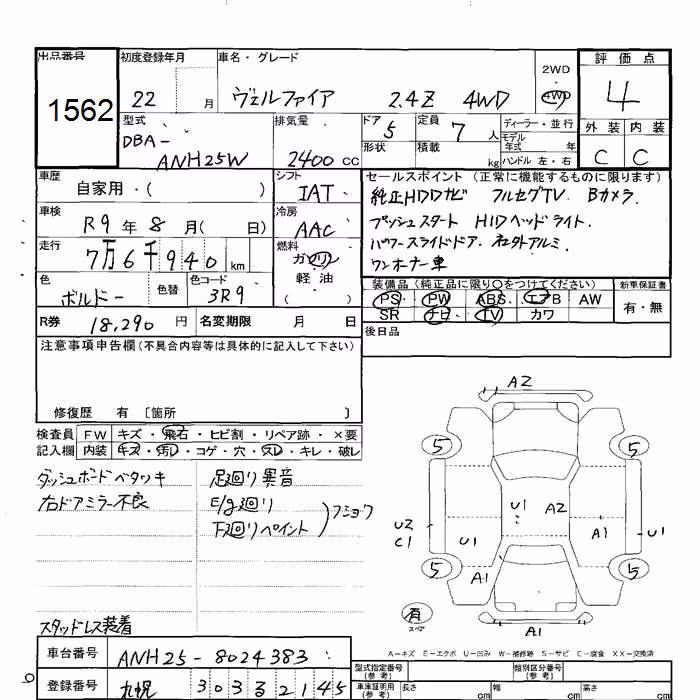 出品番号 初度登録年月 車名・グレード 2WD 評価点
1562 22 月 ヴェルファイア 2.4Z 4WD 4WD 4
型式 排気量 ドア 定員 ディーラー・並行 外装 内装
DBA- ANH25W 2400 cc 5 7 人 モデル年式 年 C C
形状 積載 kg ハンドル 左・右
車歴 シフト セールスポイント (正常に機能するものに限ります)
自家用・( ) IAT 純正HDDナビ フルセグTV Bカメラ
車検 冷房 プッシュスタート HIDヘッドライト.
R9 年 8 月( 日) AAC パワースライドドア. 社外アルミ.
走行 燃料 ワンオーナー車
7万6千940 km ガソリン
色 色替 色コード 軽油 装備品 (純正品に限り○をつけてください) 新車保証書
ボルドー 3R9 ( ) PS PW ABS エアB AW 有・無
R券 18,290 円 名変期限 月 日 SR ナビ TV カワ
注意事項申告欄(不具合内容等は具体的に記入して下さい) 後日品
修復歴 有 〔箇所 〕
検査員 FW キズ・飛石・ヒビ割・リペア跡・×要
記入欄 内装 キズ・汚レ・コゲ・穴・スレ・キレ・破レ
ダッシュボードベタツキ 足廻り異音
右ドアミラー不良 E/g廻り
下廻りペイント ) フショク
A2
5 5
U1 A2
U2 C1 U1 A1 U1
5 A1 5
有 スペア
A1
スタッドレス装着
A-キズ E-エクボ U-凹み W-補修跡 S-サビ C-腐食 XX-交換済
車台番号 ANH25-8024383
型式指定番号 (参考) 類別区分番号 (参考)
登録番号 札幌 303 る 2145
車庫証明用 (参考) 長さ cm 幅 cm 高さ cm